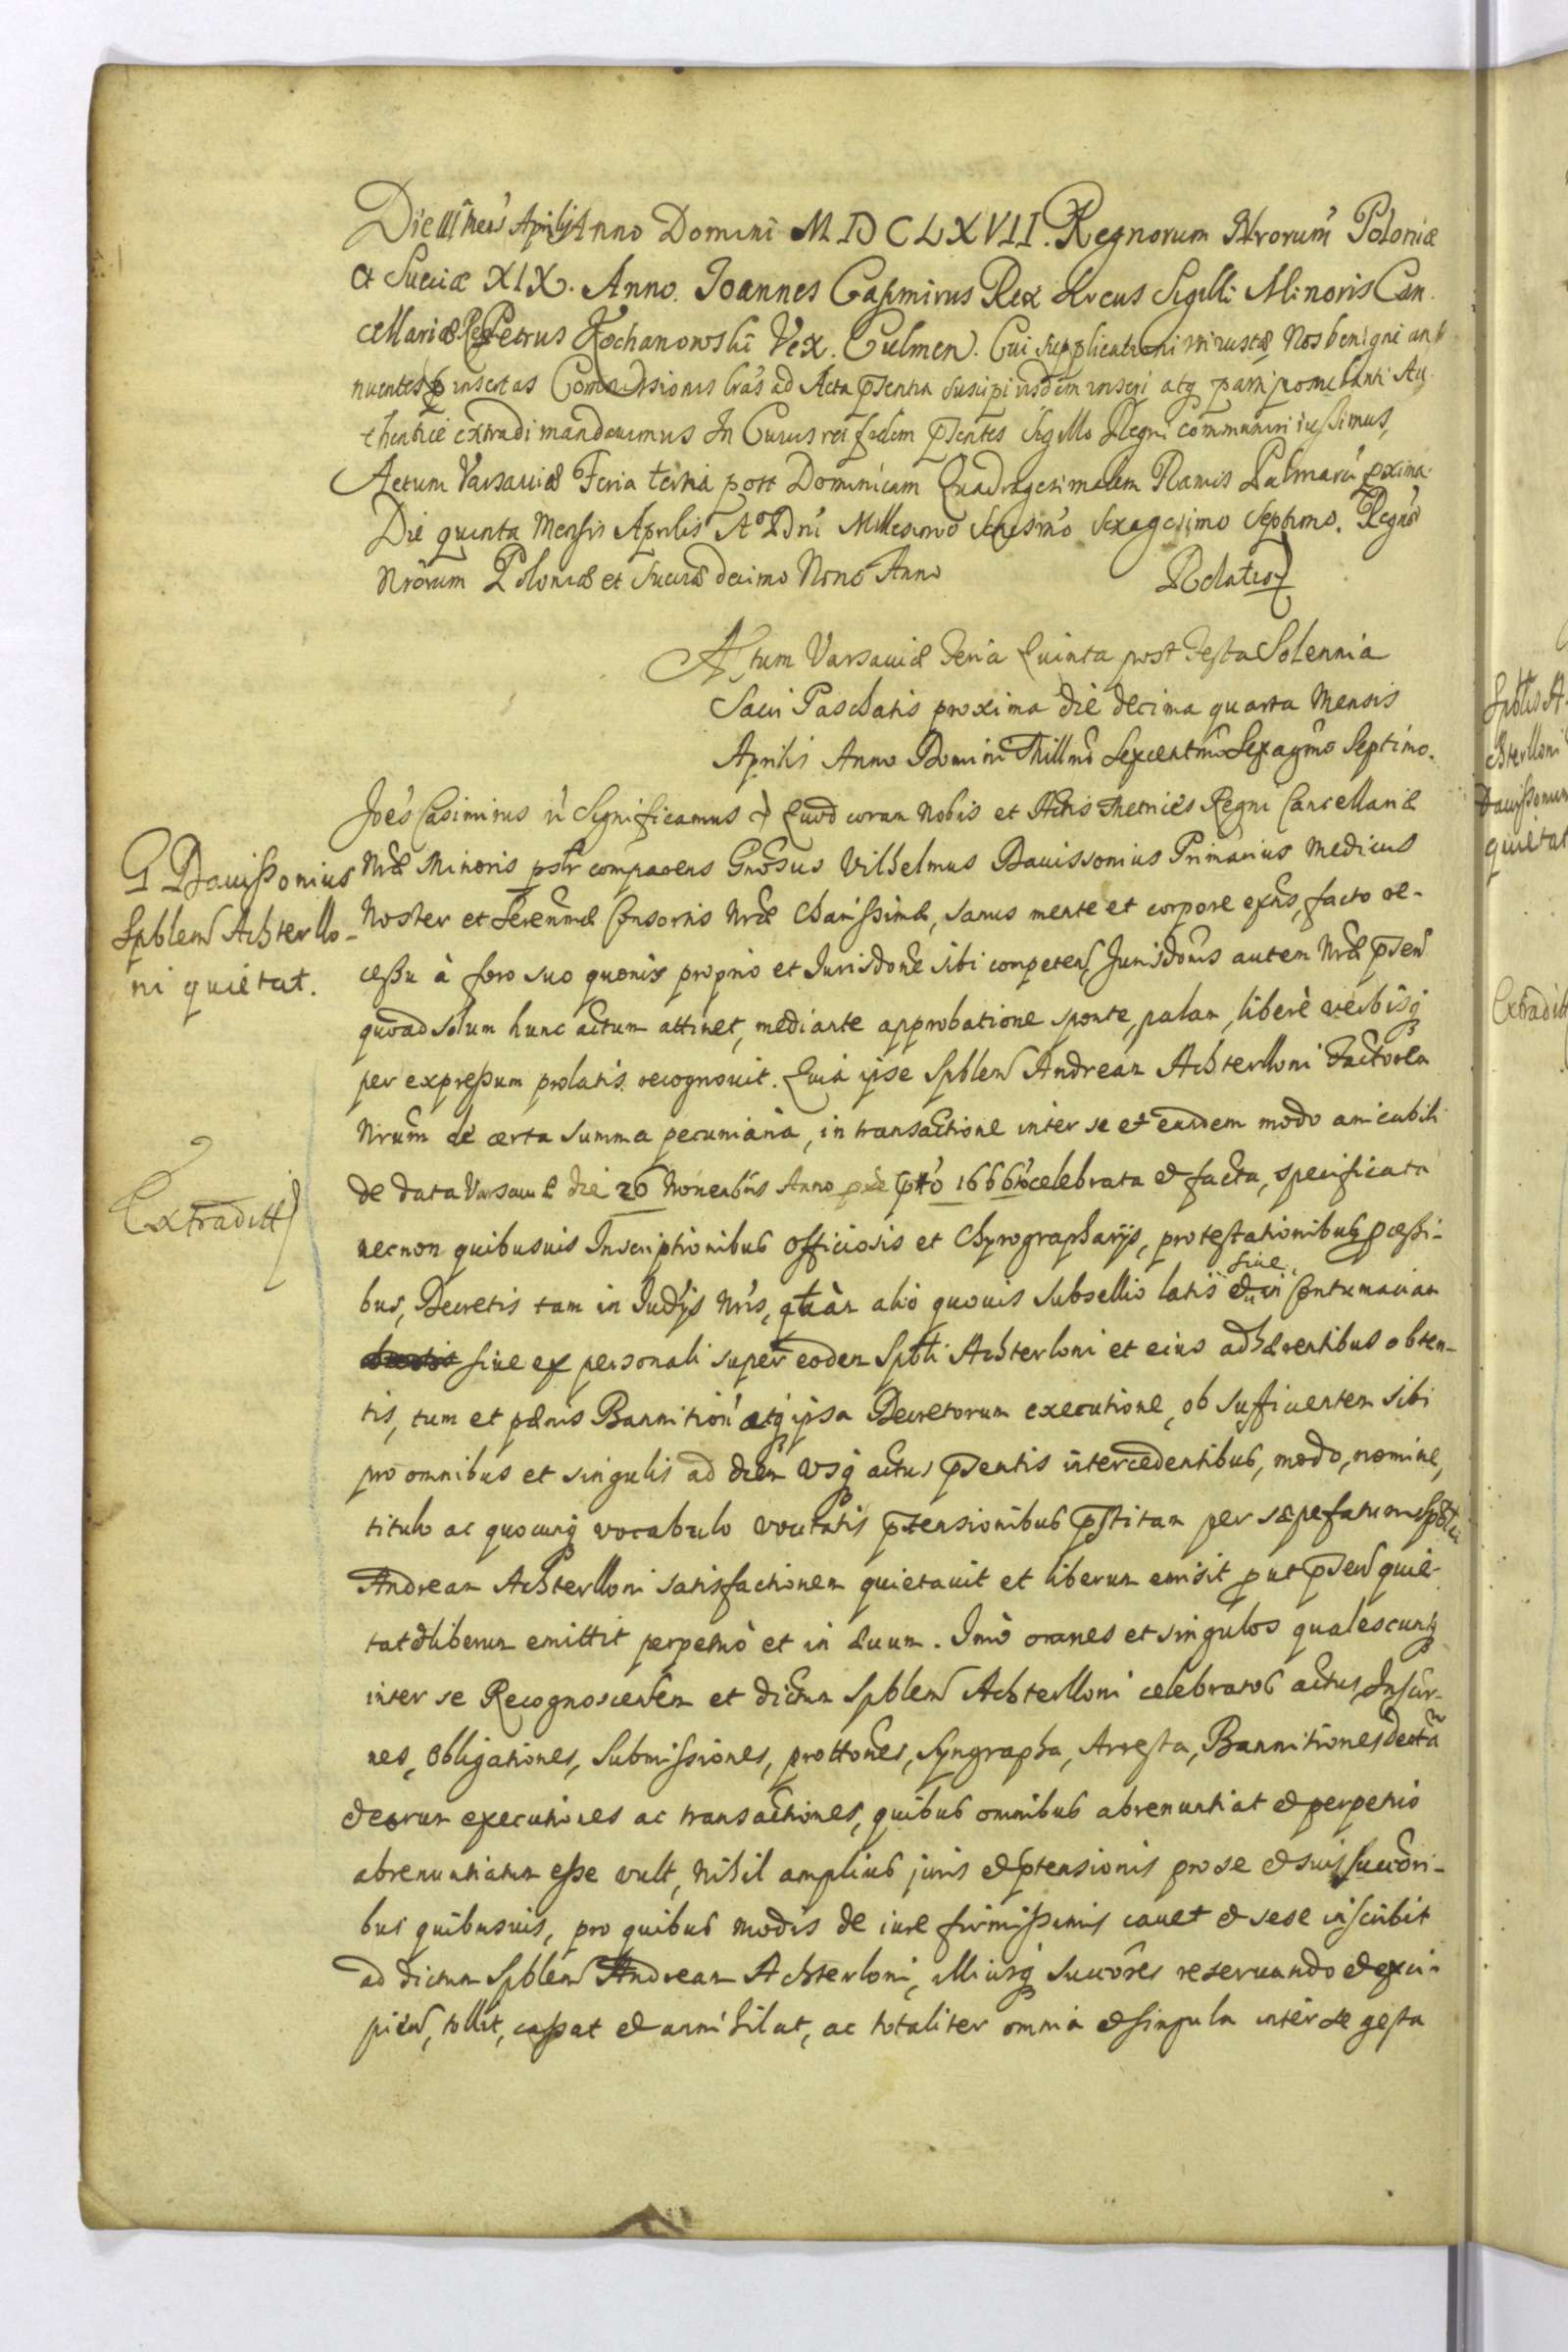 Die III Mens' Aprilis Anno Domini MDCLXVII. Regnorum Nrorum' Poloniæ
et Sueciæ XIX. Anno. Joannes Casimirus Rex Locus Sigilli Minoris Can
cellariæ Petrus Kochanowski Vex. Culmen. Cui supplicationi Nos benigne an
nuentes insertas lras ad Acta pñtia suscipi iisdem inseri atq parti Au
thentice extradi mandauimus In Cuius rei fidem pñtes Sigillo Regni communiri iussimus,
Actum Varsauiæ Feria tertia post Dominicam Quadragesimalem Ramis Palmarũ pxima
Die quinta Mensis Aprilis Aº Dni Millesimo Sexagesimo Septimo. Regnor'
Nrorum Poloniæ et Sueciæ decimo Nono Anno Relatio
Actum Varsauiæ Feria Quinta post Festa Solennia
Sacri Paschatis proxima die decima quarta Mensis
Aprilis Anno Domini Millmo Sexcentmo Sexagmo Septimo.
Joes Casimirus Significamus Quod coram Nobis et Actis Metrices Regni Cancellariæ
G Dauissonius
Spblem Achterllo-
ni quietat.
Nræ Minoris psltr comparens Gnosus Vilhelmus Dauissonius Primarius Medicus
Noster et Serenmæ Consortis Nræ Charissimæ, sanus mente et corpore exñs, facto re-
cessu à foro suo quouis proprio et Jurisdone sibi competen, Jurisdonis autem Nræ pñsen
quoad solum hunc actum attinet, mediante approbatione sponte, palam, liberè verbisq
per expressum prolatis recognouit. Quia ipse Spblem Andream Achterlloni Factorem
Nrum de certa summa pecuniaria, in transactione inter se et eundem modo amicabili
Extraditt
de data Varsauiæ die 26 Nouembris Anno ptto 1666to celebrata et facta, specificata
necnon quibusuis Inscriptionibus officiosis et Chyrographarijs, protestationibus, pcessi-
bus, Decretis tam in Judijs Nris, quàm alio quouis Subsellio latis siue in Contumaciam
siue ex personali super eodem Spbli Achterloni et eius adhærentibus obten-
tis, tum et pænis Bannition' atq ipsa Decretorum executione, ob sufficientem sibi
pro omnibus et singulis ad diem Vsq actus pñsentis intercedentibus, modo, nomine,
titulo ac quocunq vocabulo vocitatis ptensionibus pstitam per sæpefatum Spblem
Andream Achterlloni satisfactionem quietauit et liberum emisit put psen quie-
tat et liberum emittit perpetuò et in æuum. Imò omnes et singulos qualescunq
inter se Recognoscentem et dictum Spblem Achterlloni celebratos actus, Inscr-
nes, Obligationes, Submissiones, prottones, Syngrapha, Arresta, Bannitiones, decta
et eorum executiones ac transactiones, quibus omnibus abrenuntiat et perpetuo
abrenuntiatum esse vult, nihil amplius juris et ptensionis pro se et suis Succori-
bus quibusuis, pro quibus modis de iure firmissimis cauet et sese inscribit
ad dictum Spblem Andream Achterloni, illiusq Succores reseruando et exci-
pien, tollit, cassat et annihilat, ac totaliter omnia et singula inter se gesta
Spblis A
chterlloni
Dauissonium
quietat
Extraditt